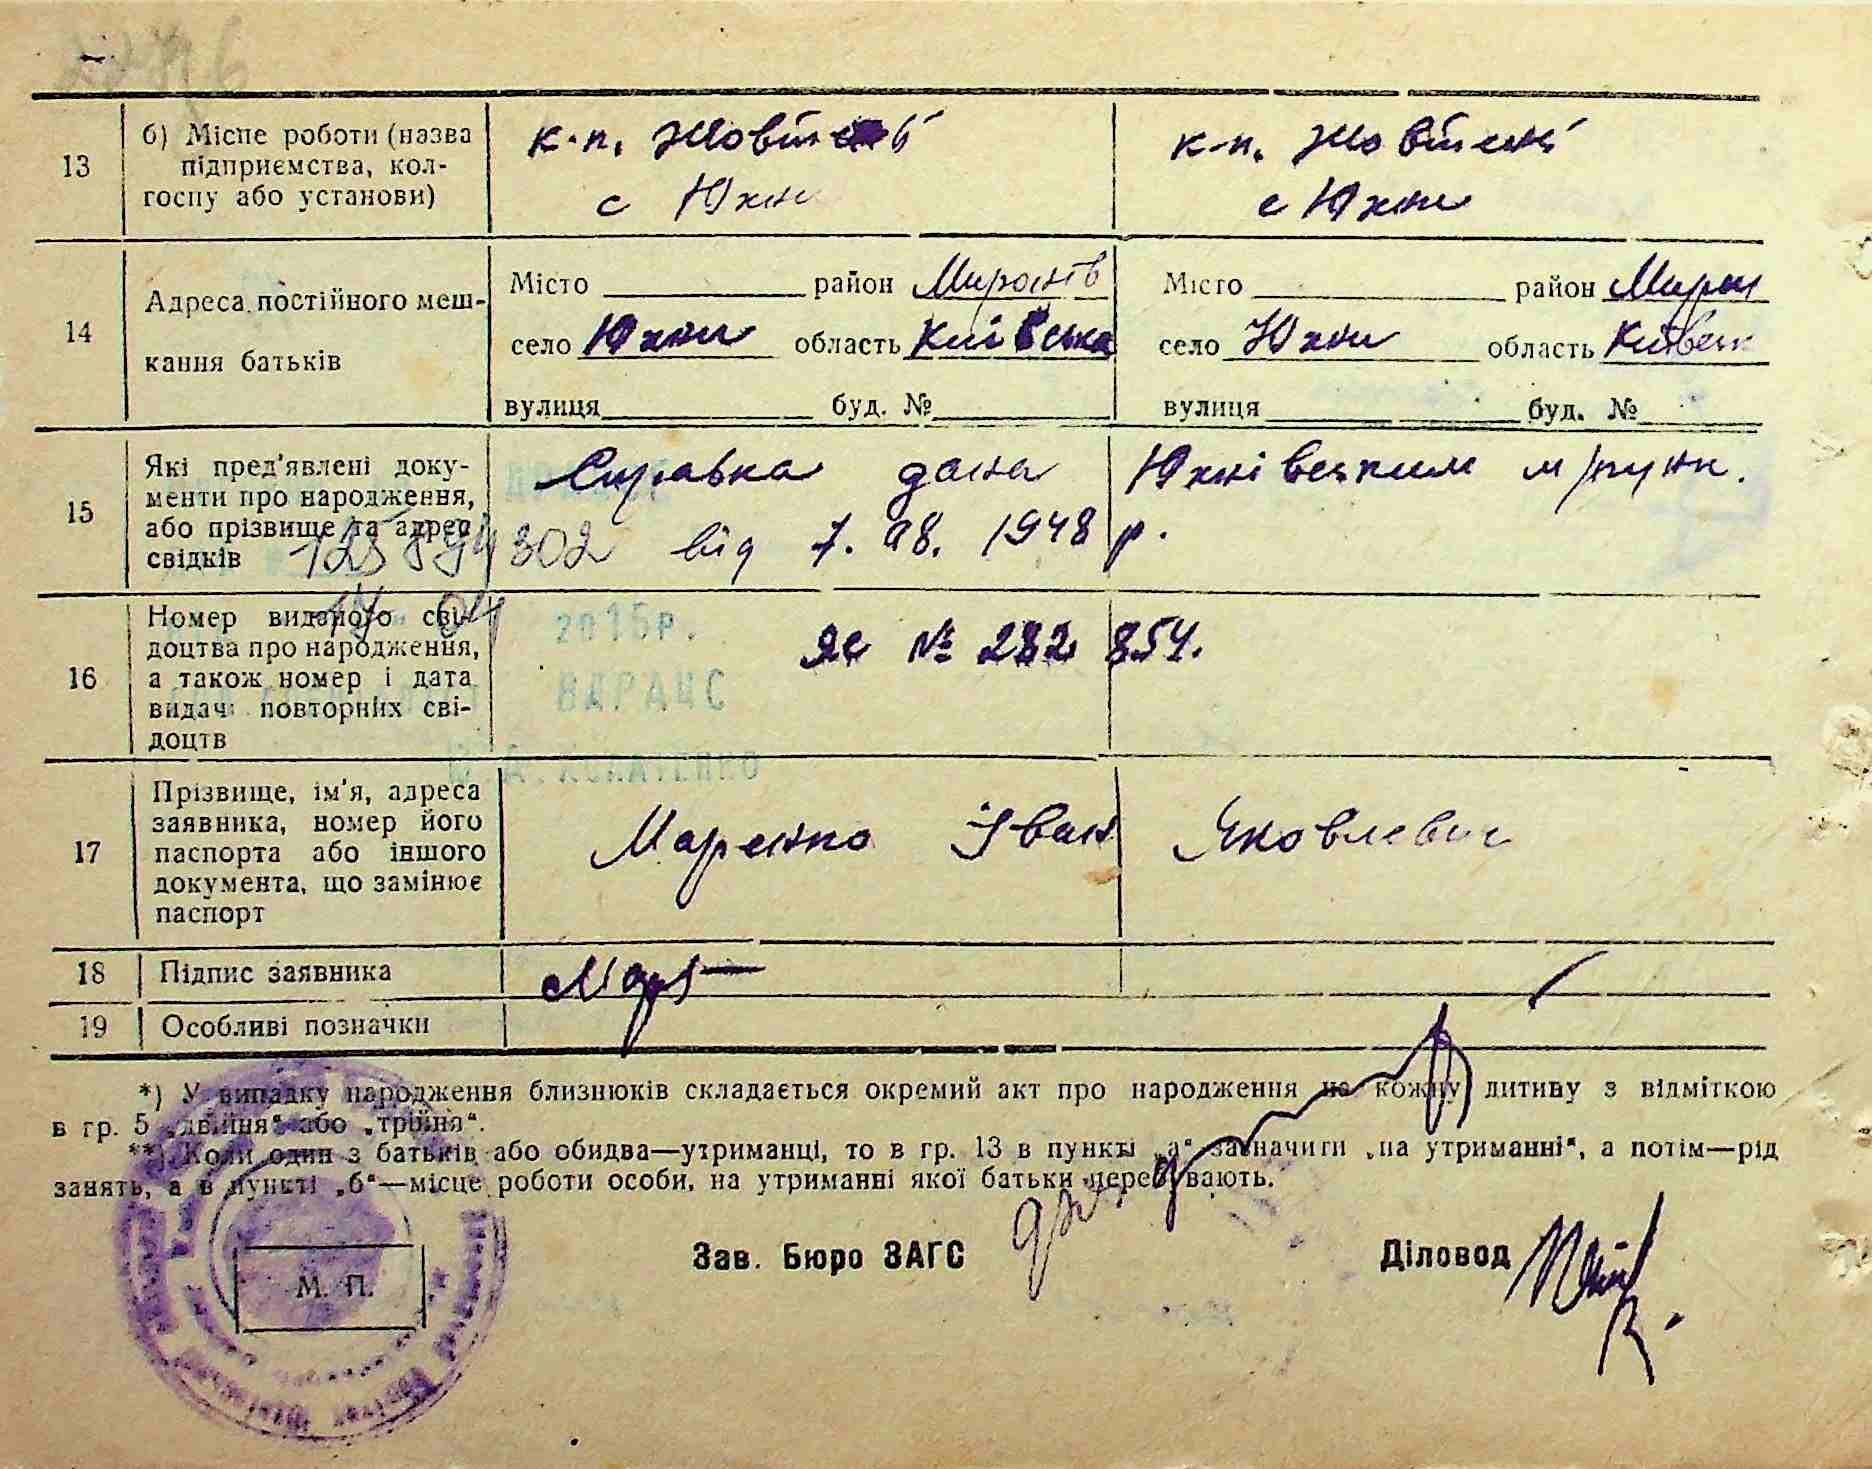 13
б) Місце роботи (назва
підприємства, кол-
госпу або установи)
к-п. Жовтень
с Юхни
к-п. Жовтень
с Юхни
14
Адреса постійного меш-
кання батьків
Місто район Миронів
село Юхни область Київська
вулиця буд. №
Місто район Мирон
село Юхни область Київськ
вулиця буд. №
15
Які пред'явлені доку-
менти про народження,
або прізвище та адрес
свідків
Справка дана Юхнівським
302 від 7. 08. 1948 р.
16
Номер виданого сві-
доцтва про народження,
а також номер і дата
видачі повторних сві-
доцтв
2015р.
ЯС № 282 854.
ВДРАЦС
17
Прізвище, ім'я, адреса
заявника, номер його
паспорта або іншого
документа, що замінює
паспорт
Маренко Іван Яковлевич
18
Підпис заявника
19
Особливі позначки
*) У випадку народження близнюків складається окремий акт про народження на кожну дитину з відміткою
в гр. 5 „двійня“ або „трійня“.
**) Коли один з батьків або обидва—утриманці, то в гр. 13 в пункті „а“ зазначити „на утриманні“, а потім—рід
занять, а в пункті „б“—місце роботи особи, на утриманні якої батьки перебувають.
Зав. Бюро ЗАГС
Діловод
М. П.